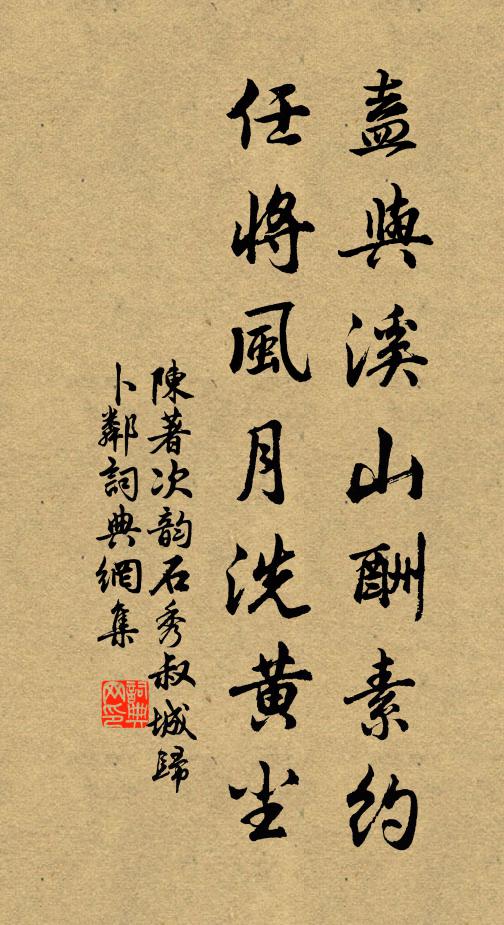 盍與溪山酬素約
任將風月洗黃尘
陳著次韵石秀叔城歸
卜鄰詞典網集
詞典网印